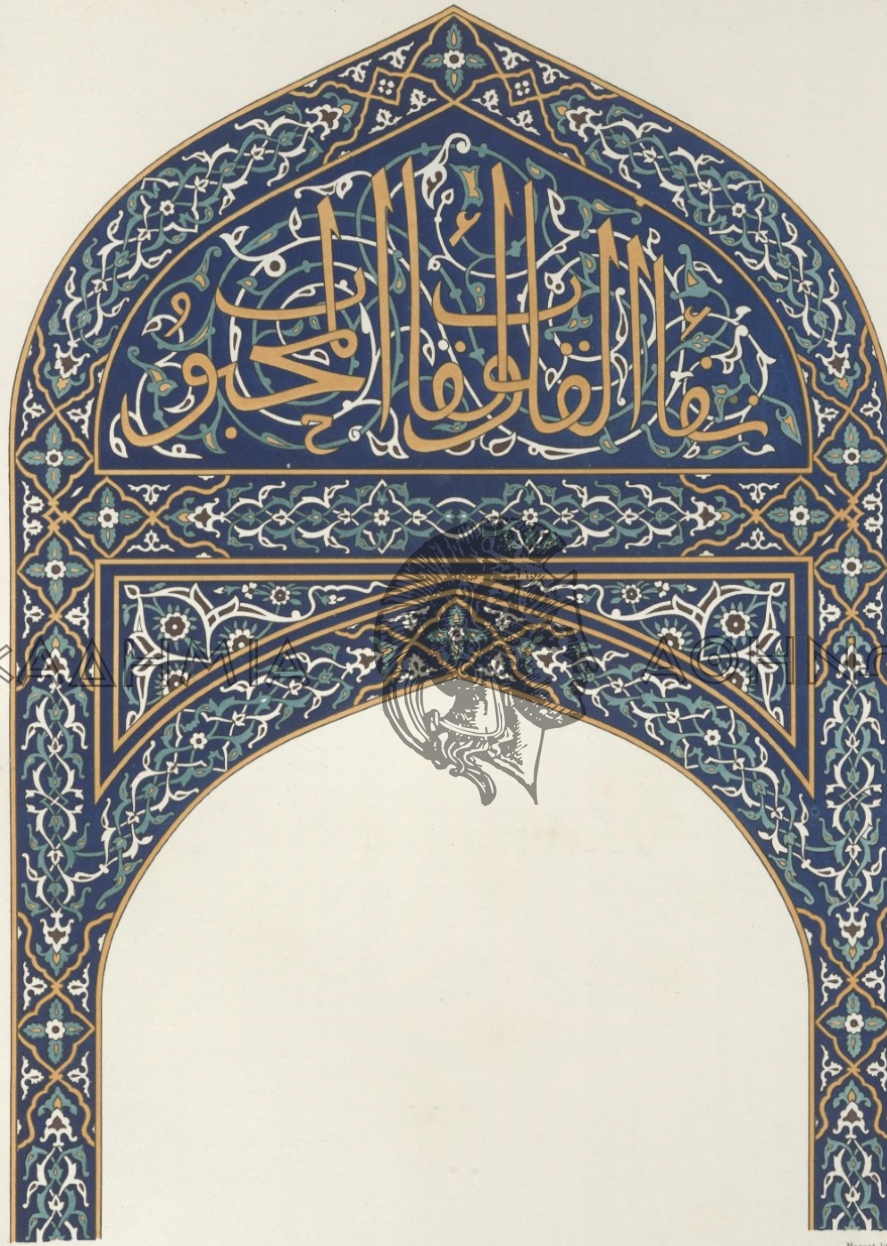 شفاء القلوب لقاء المحبوب
ΚΑΔΗΜΙΑ ΑΘΗΝ